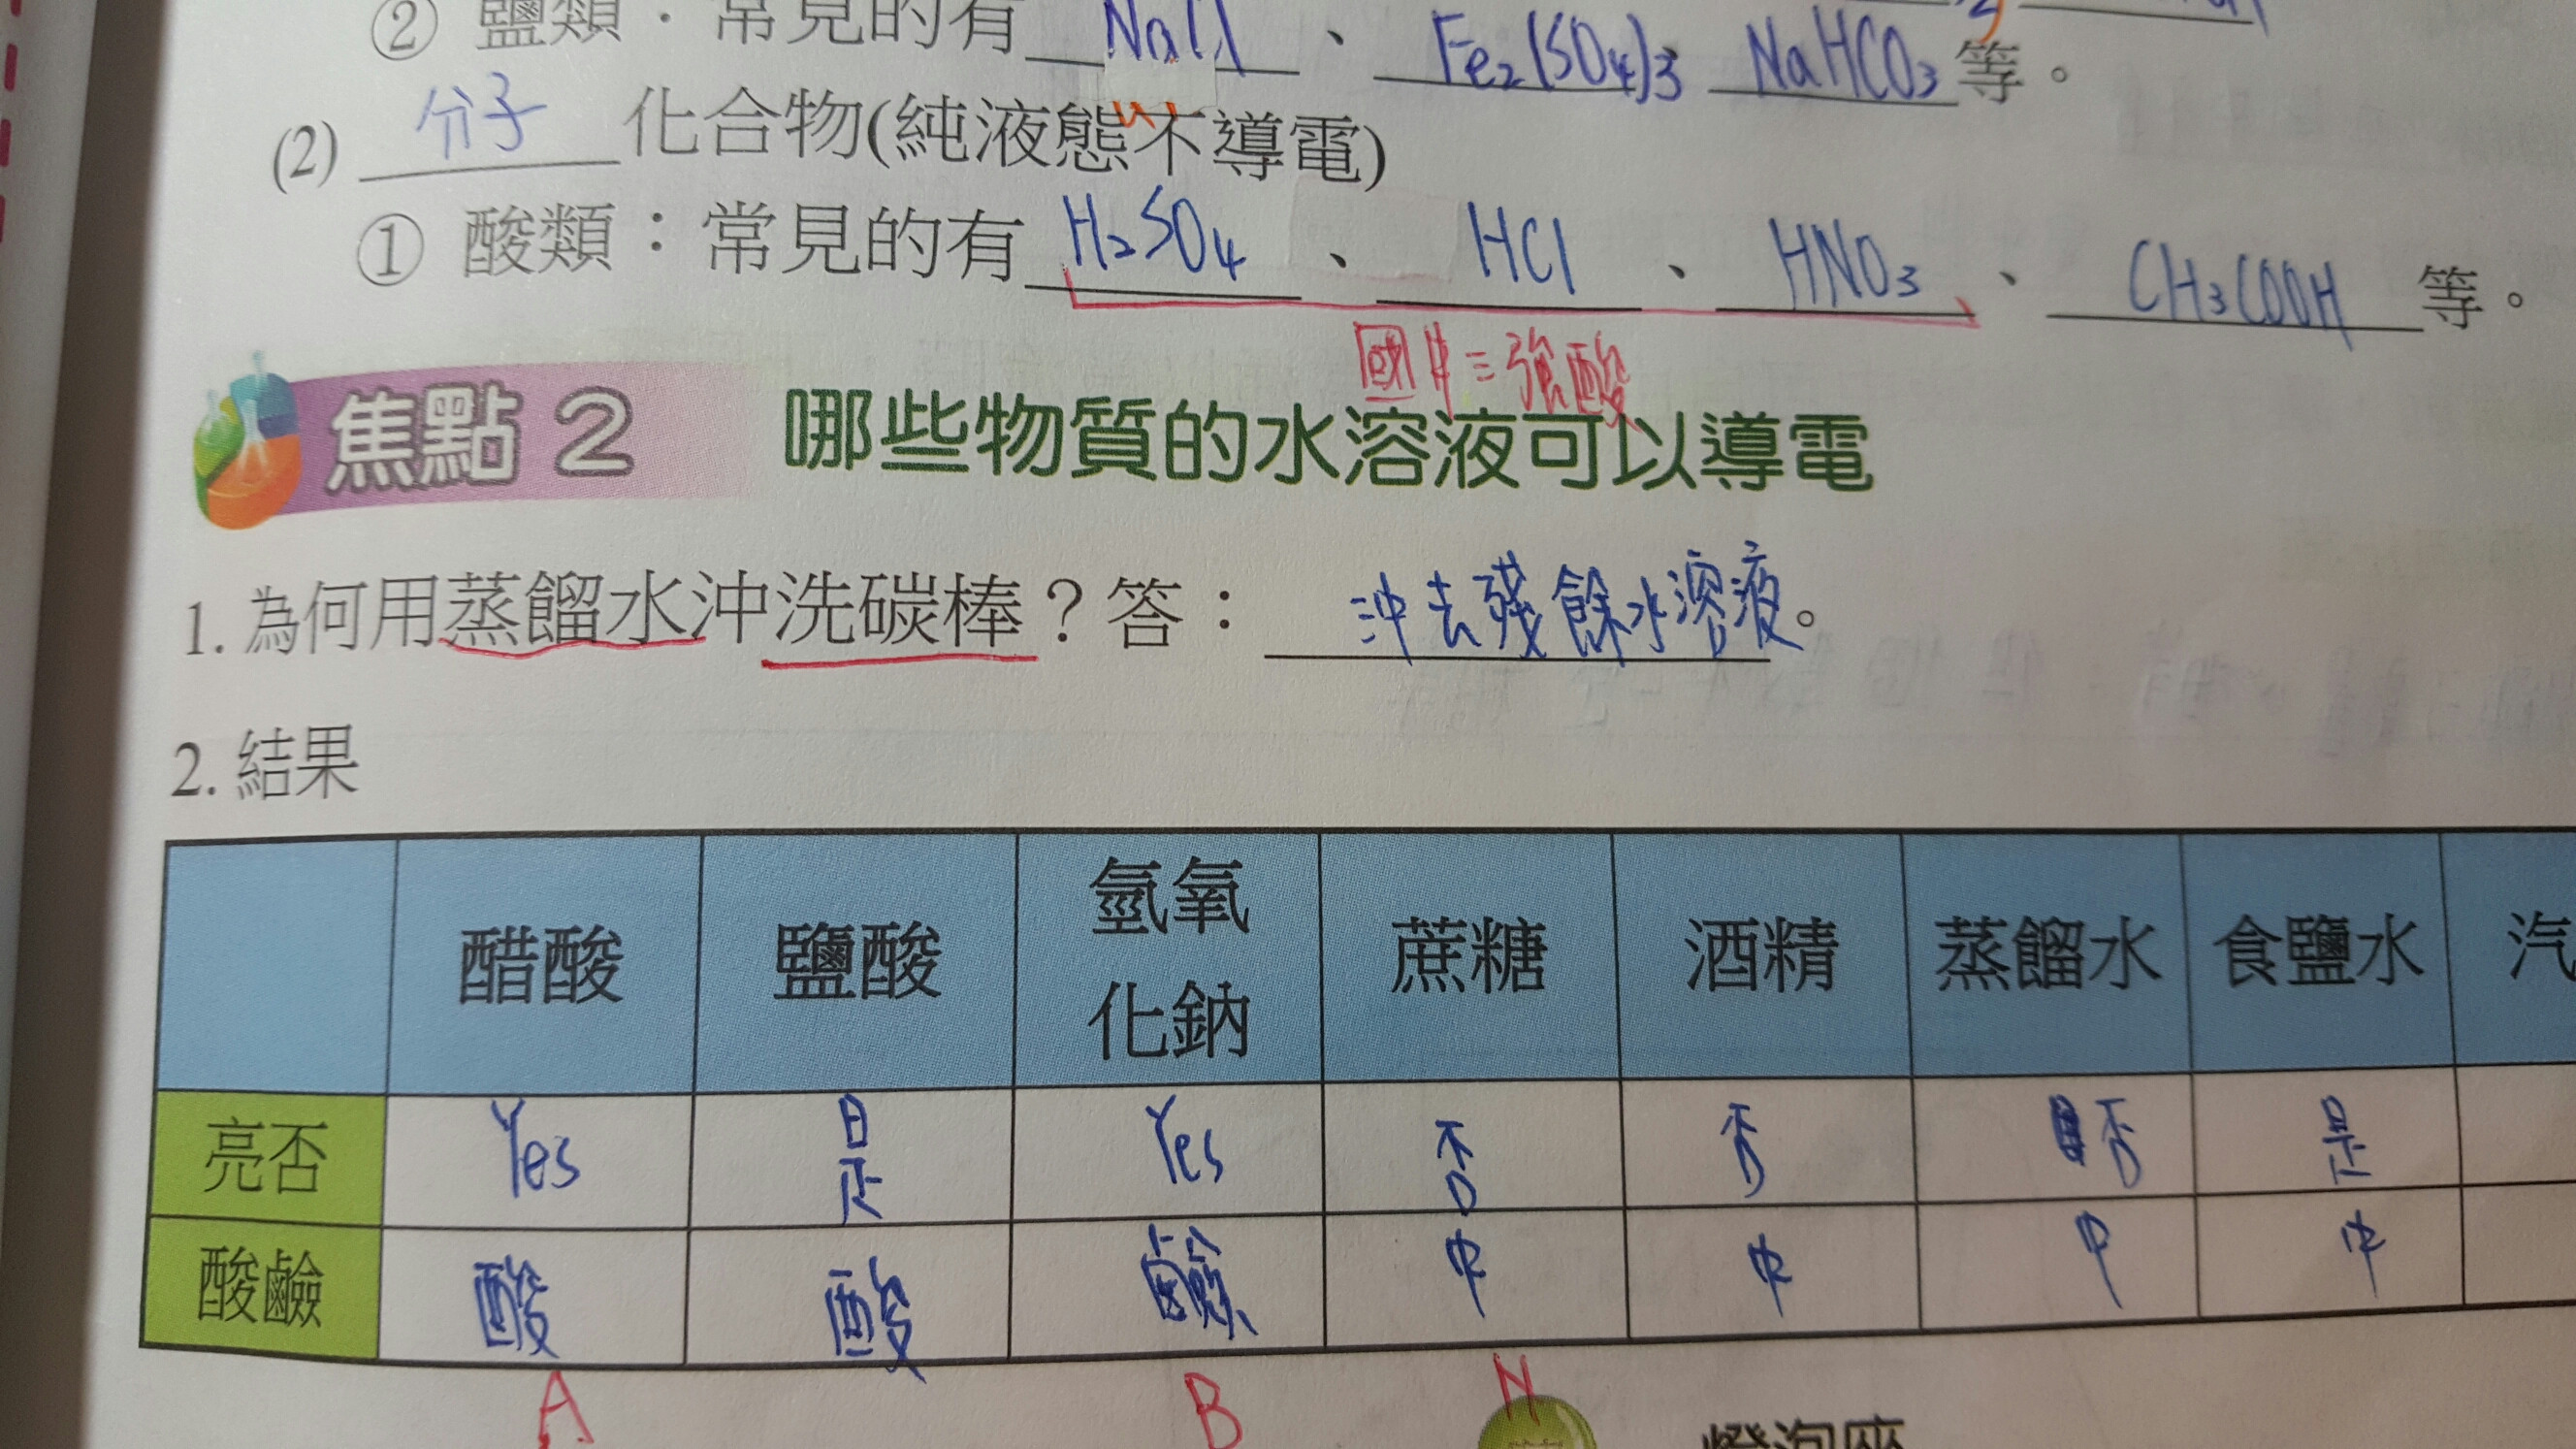 ② 鹽類：常見的有 NaCl 、 Fe₂(SO₄)₃ NaHCO₃ 等。
(2) 分子 化合物(純液態不導電)
① 酸類：常見的有 H₂SO₄ 、 HCl 、 HNO₃ 、 CH₃COOH 等。
國中三強酸
焦點 2 哪些物質的水溶液可以導電
1. 為何用蒸餾水沖洗碳棒？答： 沖去殘餘水溶液。
2. 結果
醋酸 鹽酸 氫氧化鈉 蔗糖 酒精 蒸餾水 食鹽水 汽
亮否 Yes 是 Yes 否 否 否 是
酸鹼 酸 酸 鹼 中 中 中 中
A B N
燈泡座